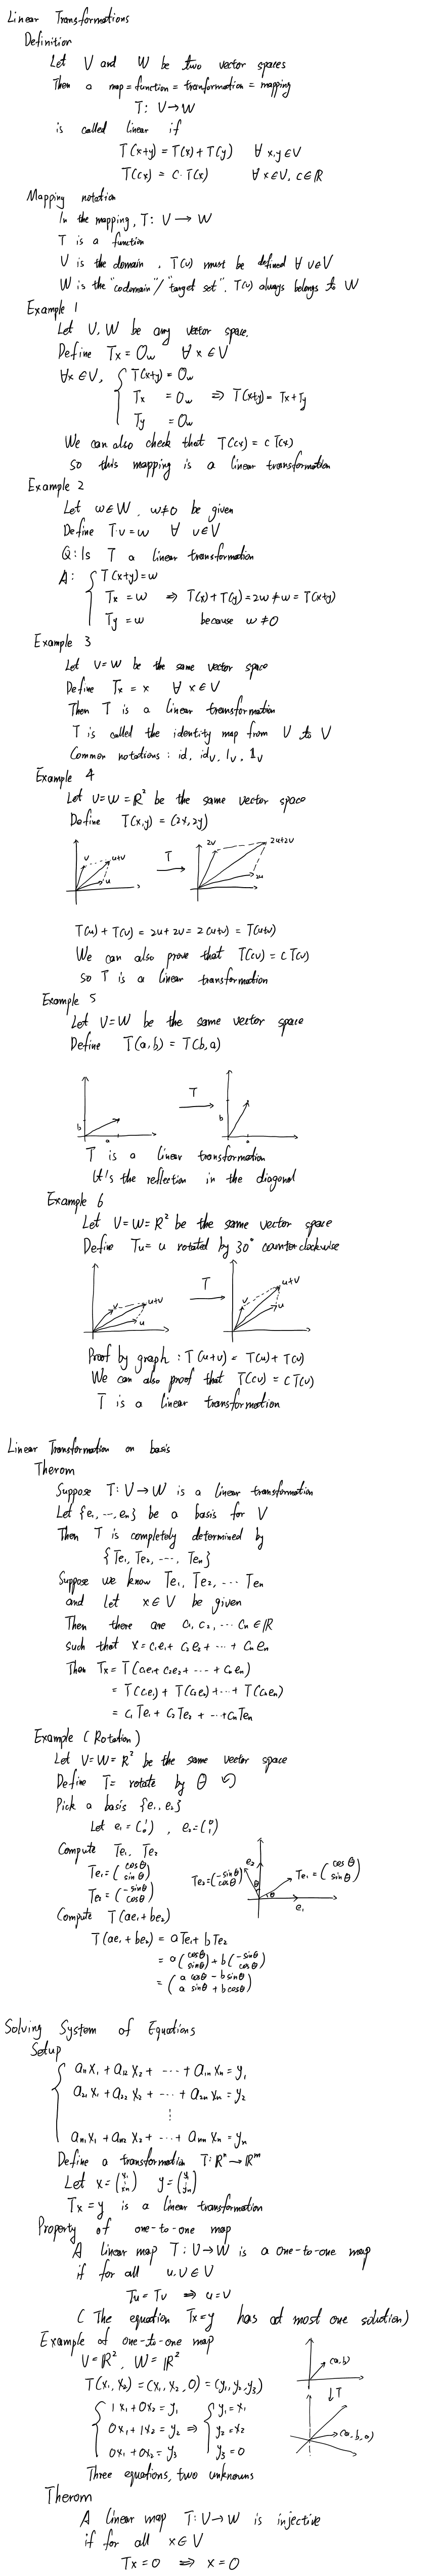 Linear Transformations
Definition
Let V and W be two vector spaces
Then a map = function = tranformation = mapping
T: V → W
is called linear if
T(x+y) = T(x) + T(y) ∀ x,y ∈ V
T(cx) = c·T(x) ∀ x ∈ V, c ∈ ℝ
Mapping notation
In the mapping, T: V → W
T is a function
V is the domain, T(v) must be defined ∀ v ∈ V
W is the "codomain"/"target set", T(v) always belongs to W
Example 1
Let V, W be any vector space.
Define Tx = 0w ∀ x ∈ V
∀x ∈ V, { T(x+y) = 0w
Tx = 0w ⇒ T(x+y) = Tx + Ty
Ty = 0w
We can also check that T(cx) = c T(x)
so this mapping is a linear transformation
Example 2
Let w ∈ W, w ≠ 0 be given
Define T·v = w ∀ v ∈ V
Q: Is T a linear transformation
A: { T(x+y) = w
Tx = w ⇒ T(x) + T(y) = 2w ≠ w = T(x+y)
Ty = w because w ≠ 0
Example 3
Let V = W be the same vector space
Define Tx = x ∀ x ∈ V
Then T is a linear transformation
T is called the identity map from V to V
Common notations: id, idv, 1v, 𝟙v
Example 4
Let V = W = ℝ² be the same vector space
Define T(x,y) = (2x, 2y)
v u+v u
T
2v 2u+2v 2u
T(u) + T(v) = 2u + 2v = 2(u+v) = T(u+v)
We can also prove that T(cv) = c T(v)
so T is a linear transformation
Example 5
Let V = W be the same vector space
Define T(a,b) = T(b,a)
b a
T
b a
T is a linear transformation
It's the reflection in the diagonal
Example 6
Let V = W = ℝ² be the same vector space
Define Tu = u rotated by 30° counterclockwise
v u+v u
T
v u+v u
Proof by graph: T(u+v) = T(u) + T(v)
We can also proof that T(cv) = c T(v)
T is a linear transformation
Linear Transformation on basis
Therom
Suppose T: V → W is a linear transformation
Let {e₁, ..., en} be a basis for V
Then T is completely determined by
{Te₁, Te₂, ..., Ten}
Suppose we know Te₁, Te₂, ... Ten
and let x ∈ V be given
Then there are c₁, c₂, ... cn ∈ ℝ
such that x = c₁e₁ + c₂e₂ + ... + cnen
Then Tx = T(c₁e₁ + c₂e₂ + ... + cnen)
= T(c₁e₁) + T(c₂e₂) + ... + T(cnen)
= c₁Te₁ + c₂Te₂ + ... + cnTen
Example (Rotation)
Let V = W = ℝ² be the same vector space
Define T = rotate by θ ↺
Pick a basis {e₁, e₂}
Let e₁ = (1 0), e₂ = (0 1)
Compute Te₁, Te₂
Te₁ = (cosθ sinθ)
Te₂ = (-sinθ cosθ)
e₂
Te₂ = (-sinθ cosθ) θ θ Te₁ = (cosθ sinθ)
e₁
Compute T(ae₁ + be₂)
T(ae₁ + be₂) = aTe₁ + bTe₂
= a(cosθ sinθ) + b(-sinθ cosθ)
= (a cosθ - b sinθ a sinθ + b cosθ)
Solving System of Equations
Setup
{ a₁₁x₁ + a₁₂x₂ + ... + a₁nxn = y₁
a₂₁x₁ + a₂₂x₂ + ... + a₂nxn = y₂
⋮
am₁x₁ + am₂x₂ + ... + amnxn = ym
Define a transformation T: ℝⁿ → ℝᵐ
Let x = (x₁ ⋮ xn) y = (y₁ ⋮ yn)
Tx = y is a linear transformation
Property of one-to-one map
A linear map T: V → W is a one-to-one map
if for all u, v ∈ V
Tu = Tv ⇒ u = v
(The equation Tx = y has at most one solution)
Example of one-to-one map
V = ℝ², W = ℝ²
T(x₁, x₂) = (x₁, x₂, 0) = (y₁, y₂, y₃)
{ 1x₁ + 0x₂ = y₁ { y₁ = x₁
0x₁ + 1x₂ = y₂ ⇒ y₂ = x₂
0x₁ + 0x₂ = y₃ y₃ = 0
(a,b)
↓T
(a,b,0)
Three equations, two unknowns
Therom
A linear map T: V → W is injective
if for all x ∈ V
Tx = 0 ⇒ x = 0